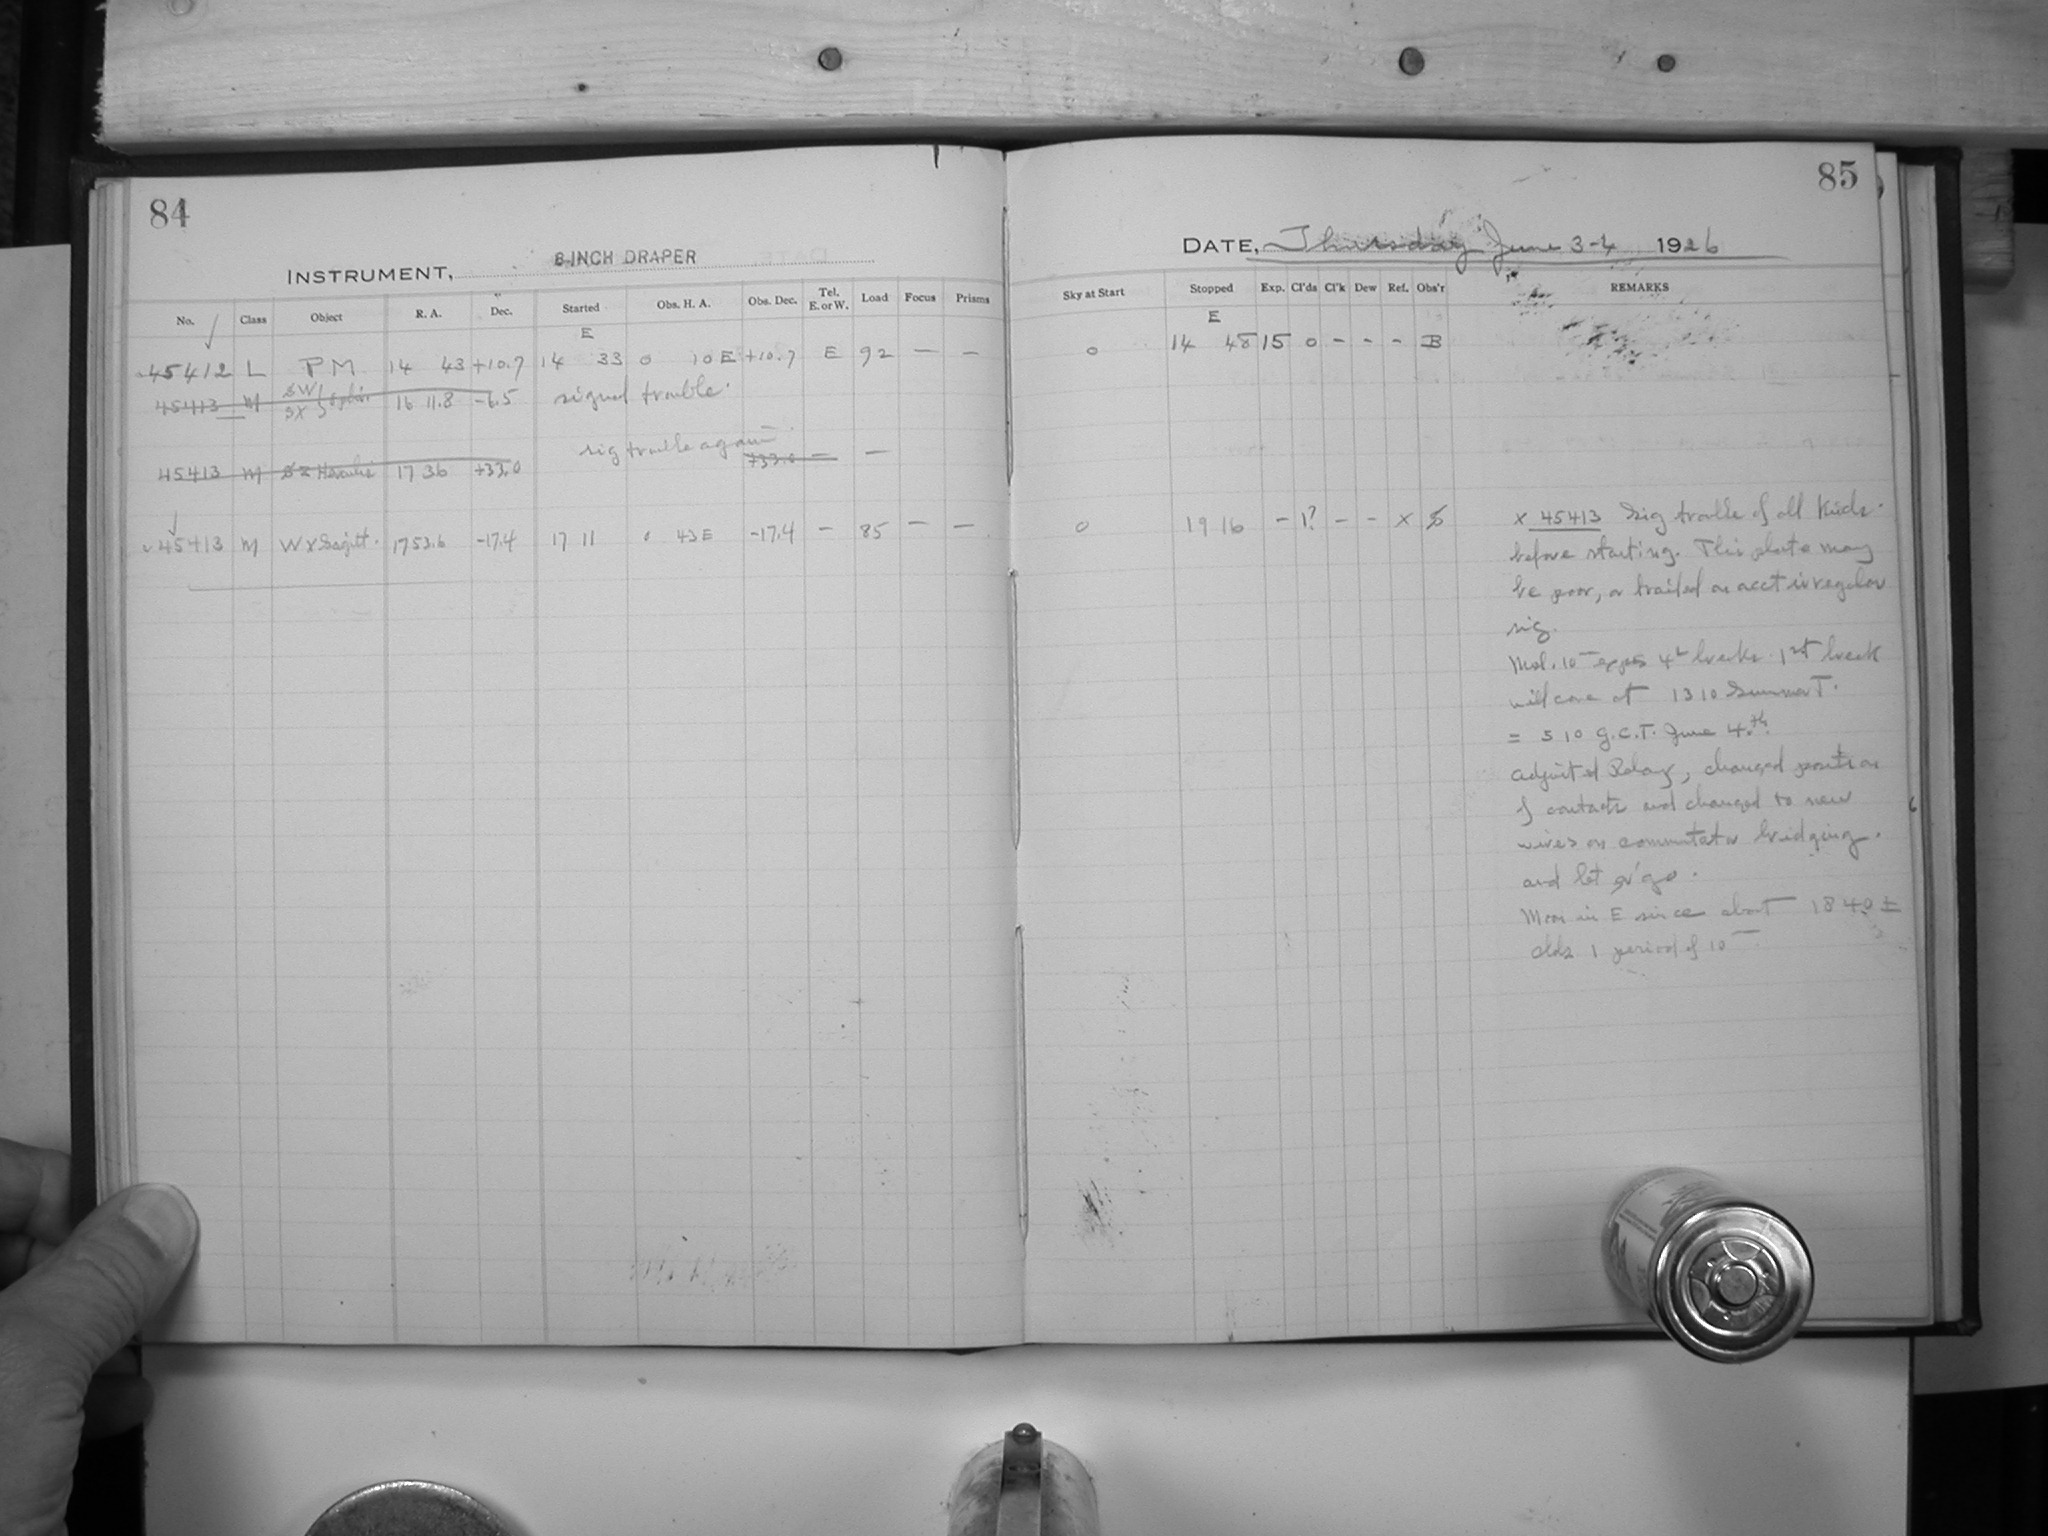 84
INSTRUMENT, 8 INCH DRAPER
No. Class Object R. A. Dec. Started Obs. H. A. Obs. Dec. Tel. E. or W. Load Focus Prisms
E
45412 L P M 14 43 +10.7 14 33 0 10 E +10.7 E 92 — —
SW
45413 M SX 16 11.8 -6.5 signal trouble.
sig trouble again
45413 M 17 36 +33.0 +33.0 — —
45413 M WX Sagitt. 17 53.6 -17.4 17 11 0 43 E -17.4 - 85 — —
85
DATE, Thursday June 3-4 1926
Sky at Start Stopped Exp. Cl'ds Cl'k Dew Ref. Obs'r REMARKS
E
0 14 48 15 0 - - - B
0 19 16 - 1? - - x x 45413 Sig trouble of all kinds.
before starting. This plate may
be poor, or trailed on acct irregular
sig.
10 expos breaks. 1st break
will come at 13 10 Summer T.
= 5 10 G.C.T. June 4.th
adjusted Relay, changed position
of contacts and changed to new
wires on commutator bridging.
and let er go.
Moon in E since about 18 40 ±
clds 1 period of 10